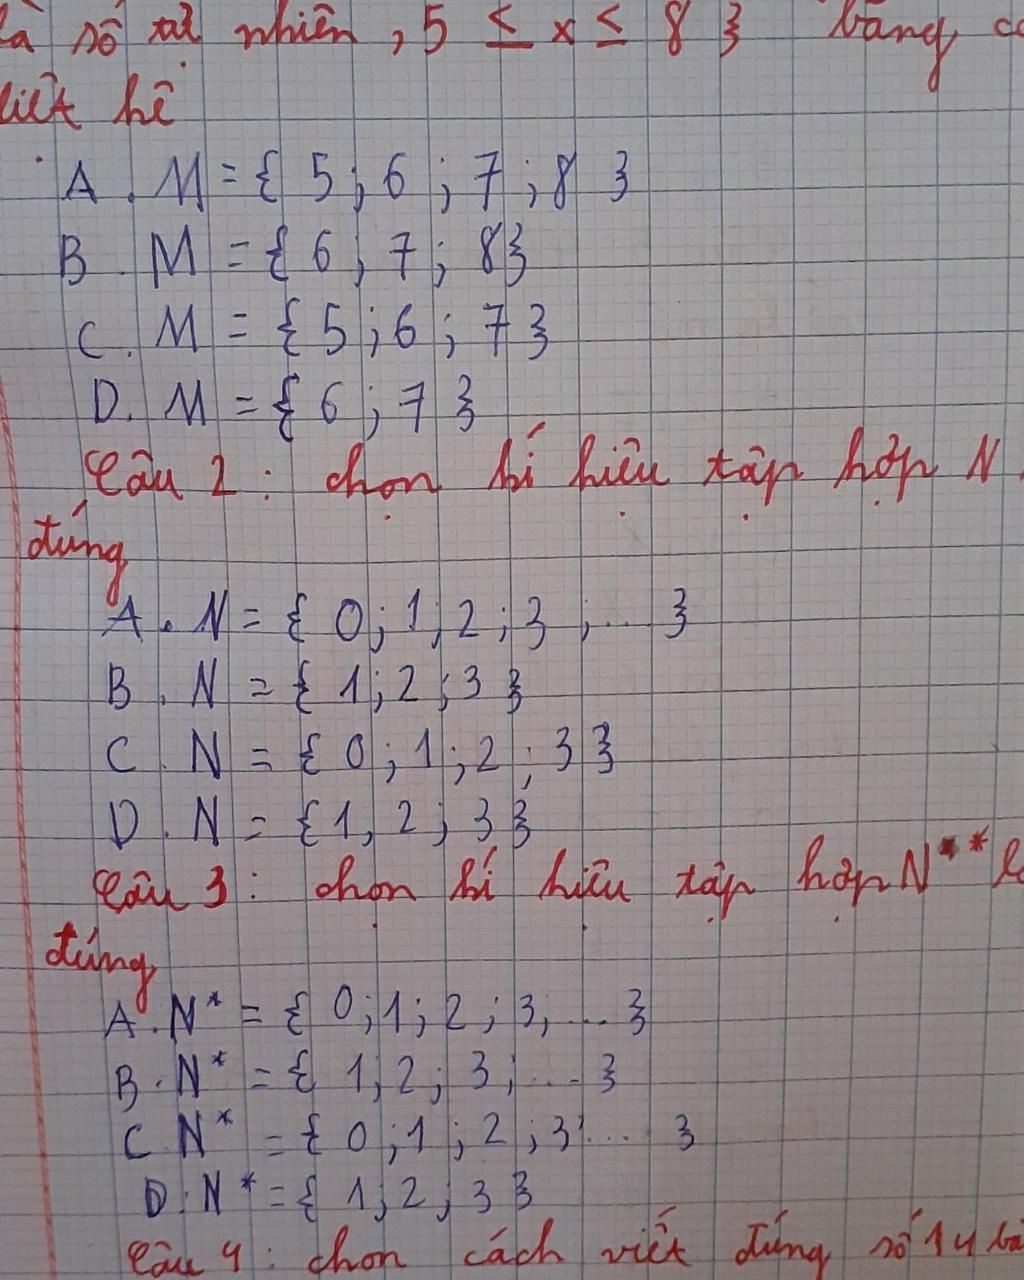 là số tự nhiên, 5 ≤ x ≤ 8 } bằng
liệt kê
A. M = { 5 ; 6 ; 7 ; 8 }
B. M = { 6 ; 7 ; 8 }
C. M = { 5 ; 6 ; 7 }
D. M = { 6 ; 7 }
Câu 2 : chọn kí hiệu tập hợp N
đúng
A. N = { 0 ; 1 ; 2 ; 3 ; ... }
B. N = { 1 ; 2 ; 3 }
C. N = { 0 ; 1 ; 2 ; 3 }
D. N = { 1, 2 ; 3 }
Câu 3 : chọn kí hiệu tập hợp N**
đúng
A. N* = { 0 ; 1 ; 2 ; 3, ... }
B. N* = { 1, 2 ; 3 ; ... }
C N* = { 0 ; 1 ; 2 ; 3 ... }
D. N* = { 1, 2 ; 3 }
Câu 4 : chọn cách viết đúng số 14